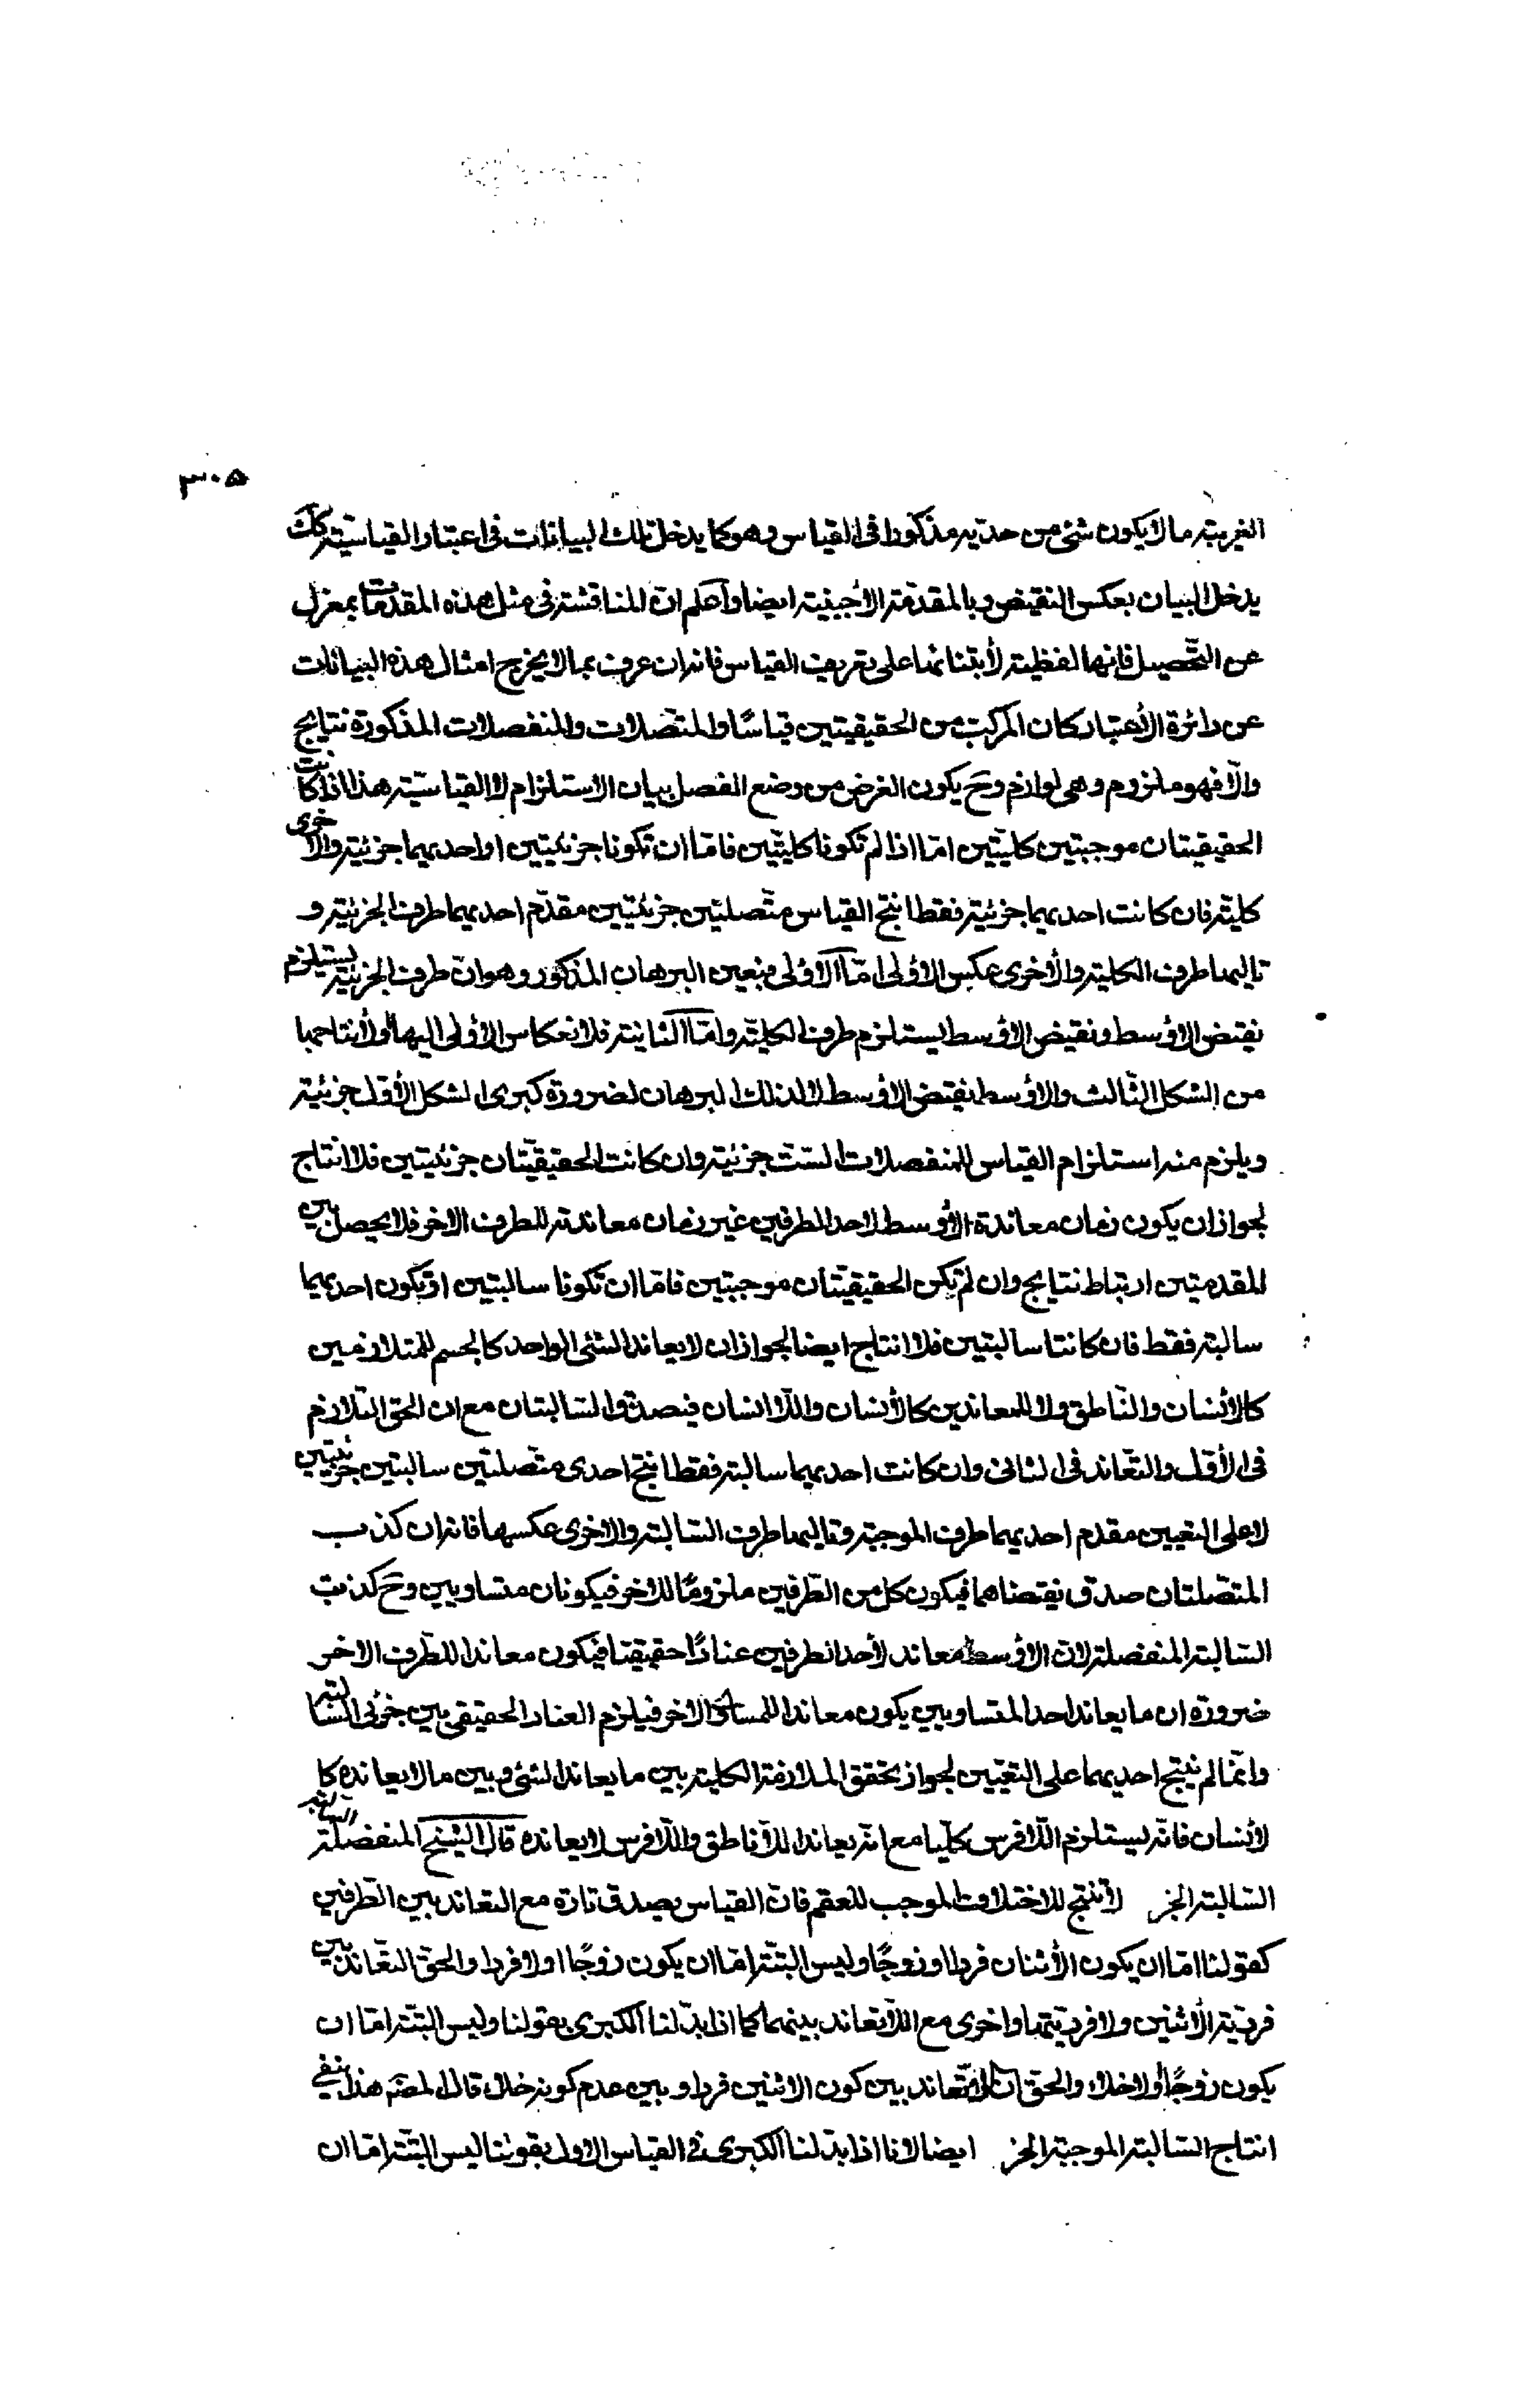 ٣٠٥
الغريبة ما لا يكون شئ من حديه مذكورا فى القياس وهو كما يدخل تلك البيانات فى اعتبار القياسية كك
يدخل البيان بعكس النقيض وبالمقدمة الأجنبية ايضا واعلم ان المناقشة فى مثل هذه المقدمات بمعزل
عن التحصيل فانها لفظية لأبتنائها على تعريف القياس فانه ان عرف بما لا يخرج امثال هذه البيانات
عن دائرة الأعتبار كان المركب من الحقيقيتين قياسًا والمتصلات والمنفصلات المذكورة نتايج
والّا فهو ملزوم وهى لوازم وح يكون الغرض من وضع الفصل بيان الاستلزام لا القياسية هذا اذا كانت
الحقيقيتان موجبتين كليتين امّا اذا لم تكونا كليتين فامّا ان تكونا جزئيتين او احديهما جزئية والاخرى
كلية فان كانت احديهما جزئية فقط انتج القياس متصلتين جزئيتين مقدّم احديهما طرف الجزئية و
تاليها طرف الكلية والأخرى عكس الاولى امّا الاولى فبعين البرهان المذكور وهو ان طرف الجزئية يستلزم
نقيض الاوسط ونقيض الاوسط يستلزم طرف الكلية وامّا الثانية فلانعكاس الأولى اليها ولأنتاجها
من الشكل الثالث والاوسط نقيض الاوسط لا لذلك البرهان لضرورة كبرى الشكل الأوّل جزئية
ويلزم منه استلزام القياس للمنفصلات الست جزئية وان كانت الحقيقيتان جزئيتين فلا انتاج
لجواز ان يكون زمان معاندة الأوسط لاحد الطرفين غير زمان معاندته للطرف الاخر فلا يحصل بين
المقدمتين ارتباط نتايج وان لم تكن الحقيقيتان موجبتين فامّا ان تكونا سالبتين او تكون احديهما
سالبة فقط فان كانتا سالبتين فلا انتاج ايضا لجواز ان لا يعاند الشئ الواحد كالجسم للمتلازمين
كالأنسان والناطق ولا للمعاندين كالأنسان واللا انسان فيصدق السالبتان مع ان الحق التلازم
فى الأوّل والتعاند فى الثانى وان كانت احديهما سالبة فقط انتج احدى متصلتين سالبتين جزئيتين
لا على التعيين مقدم احديهما طرف الموجبة وتاليها طرف السالبة والاخرى عكسها فانه ان كذب
المتصلتان صدق نقيضاهما فيكون كل من الطرفين ملزومًا للاخر فيكونان متساويين وح كذبت
السالبة المنفصلة لان الاوسط معاند لأحد الطرفين عنادًا حقيقيا فيكون معاندا للطرف الاخر
ضرورة ان ما يعاند احد المتساويين يكون معاندا للمساوى الاخر فيلزم العناد الحقيقى بين جزئى السالبة
وانما لم ينتج احديهما على التعيين لجواز تحقق الملازمة الكلية بين ما يعاند الشئ وبين ما لا يعانده كا
لأنسان فانه يستلزم اللافرس كليا مع انه يعاند اللاناطق واللافرس لا يعانده قال الشيخ المنفصلة السالبة
السالبة الجز لا تنتج للاختلاف الموجب للعقم فان القياس يصدق تارة مع التعاند بين الطرفين
كقولنا امّا ان يكون الأثنان فردا او زوجًا وليس البتة امّا ان يكون زوجًا او لا فردا والحق التعاند بين
فردية الأثنين ولا فرديتها واخرى مع اللا تعاند بينهما كما اذا بدلنا الكبرى بقولنا وليس البتة امّا ان
يكون زوجًا او لا خلاء والحق ان لا تعاند بين كون الاثنين فردا وبين عدم كونه خلاء قال المصَ هذا ينفي
انتاج السالبة الموجبة الجز ايضا لانا اذا بدلنا الكبرى فى القياس الاول بقولنا ليس البتة امّا ان